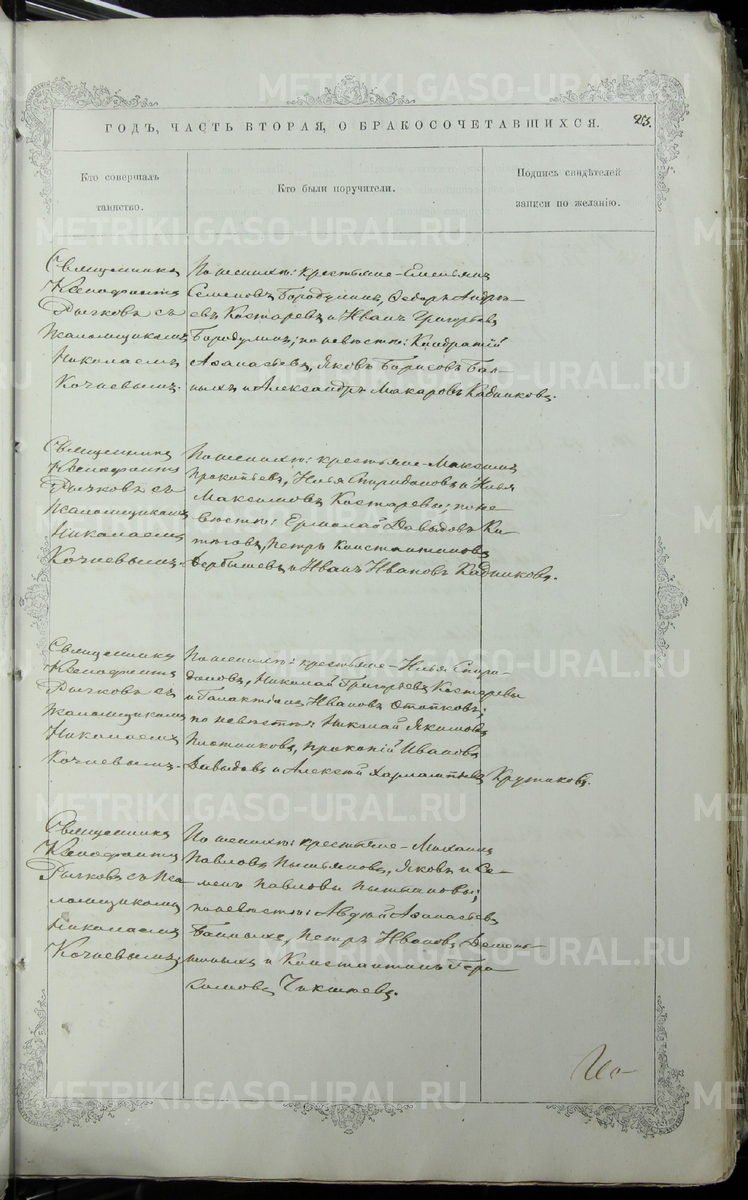 23.
ГОДЪ, ЧАСТЬ ВТОРАЯ, О БРАКОСОЧЕТАВШИХСЯ.
Кто совершалъ
таинство.
Кто были поручители.
Подпись свидѣтелей
записи по желанію.
Священникъ
Ксенофонтъ
Рычковъ съ
псаломщикомъ
Николаемъ
Кочневымъ.
По женихѣ: крестьяне – Емельянъ
Семеновъ Бородулинъ, Ѳедоръ Андрѣ-
евъ Костаревъ и Иванъ Григорьевъ
Бородулинъ; по невѣстѣ: Кондратій
Аѳанасьевъ, Яковъ Борисовъ Бал-
ныхъ и Александръ Макаровъ Кадниковъ.
Священникъ
Ксенофонтъ
Рычковъ съ
псаломщикомъ
Николаемъ
Кочневымъ.
По женихѣ: крестьяне – Максимъ
Прокопьевъ, Илья Спиридоновъ и Илья
Максимовъ Костаревы; по не-
вѣстѣ: Ермолай Давыдовъ
Петръ Константиновъ
Дербышевъ и Иванъ Ивановъ Кадниковъ.
Священникъ
Ксенофонтъ
Рычковъ съ
псаломщикомъ
Николаемъ
Кочневымъ.
По женихѣ: крестьяне – Илья Спири-
доновъ, Николай Григорьевъ Костаревы
и Галактіонъ Ивановъ
по невѣстѣ: Николай Якимовъ
Плотниковъ, Прокопій Ивановъ
Давыдовъ и Алексѣй Харлампьевъ Крутиковъ.
Священникъ
Ксенофонтъ
Рычковъ съ пса-
ломщикомъ
Николаемъ
Кочневымъ.
По женихѣ: крестьяне – Михаилъ
Павловъ Пытьяновъ, Яковъ и Се-
менъ Павловы
по невѣстѣ: Авдѣй Аѳанасьевъ
Петръ Ивановъ
и Константинъ Гера-
симовъ
METRIKI.GASO-URAL.RU